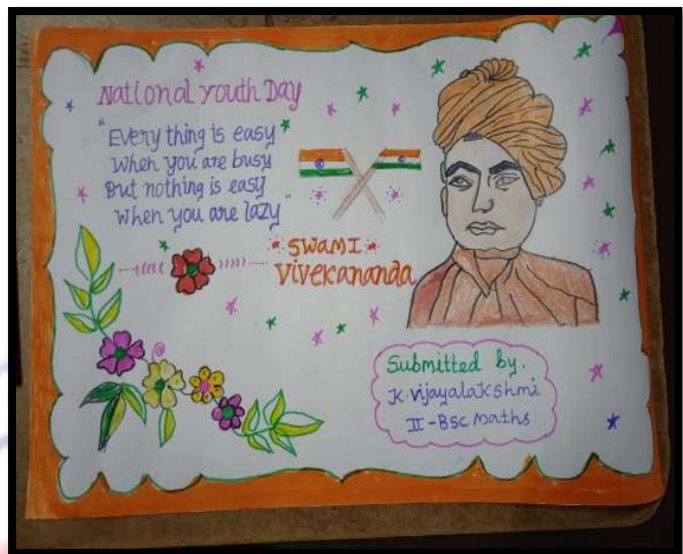 National Youth Day
"Every thing is easy
When you are busy
But nothing is easy
When you are lazy"
SWAMI
Vivekananda
Submitted by.
K. Vijayalakshmi
II - BSC Maths